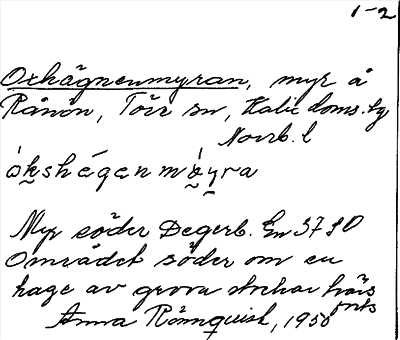 1-2
Oxhägnenmyran, myr å
Rånön, Töre sn, Kalix doms.lg
Norrb. l
Myr söder Degerb. En 37 80
Området söder om en
hage av grova stockar härs
forts
Anna Rönnquist, 1950